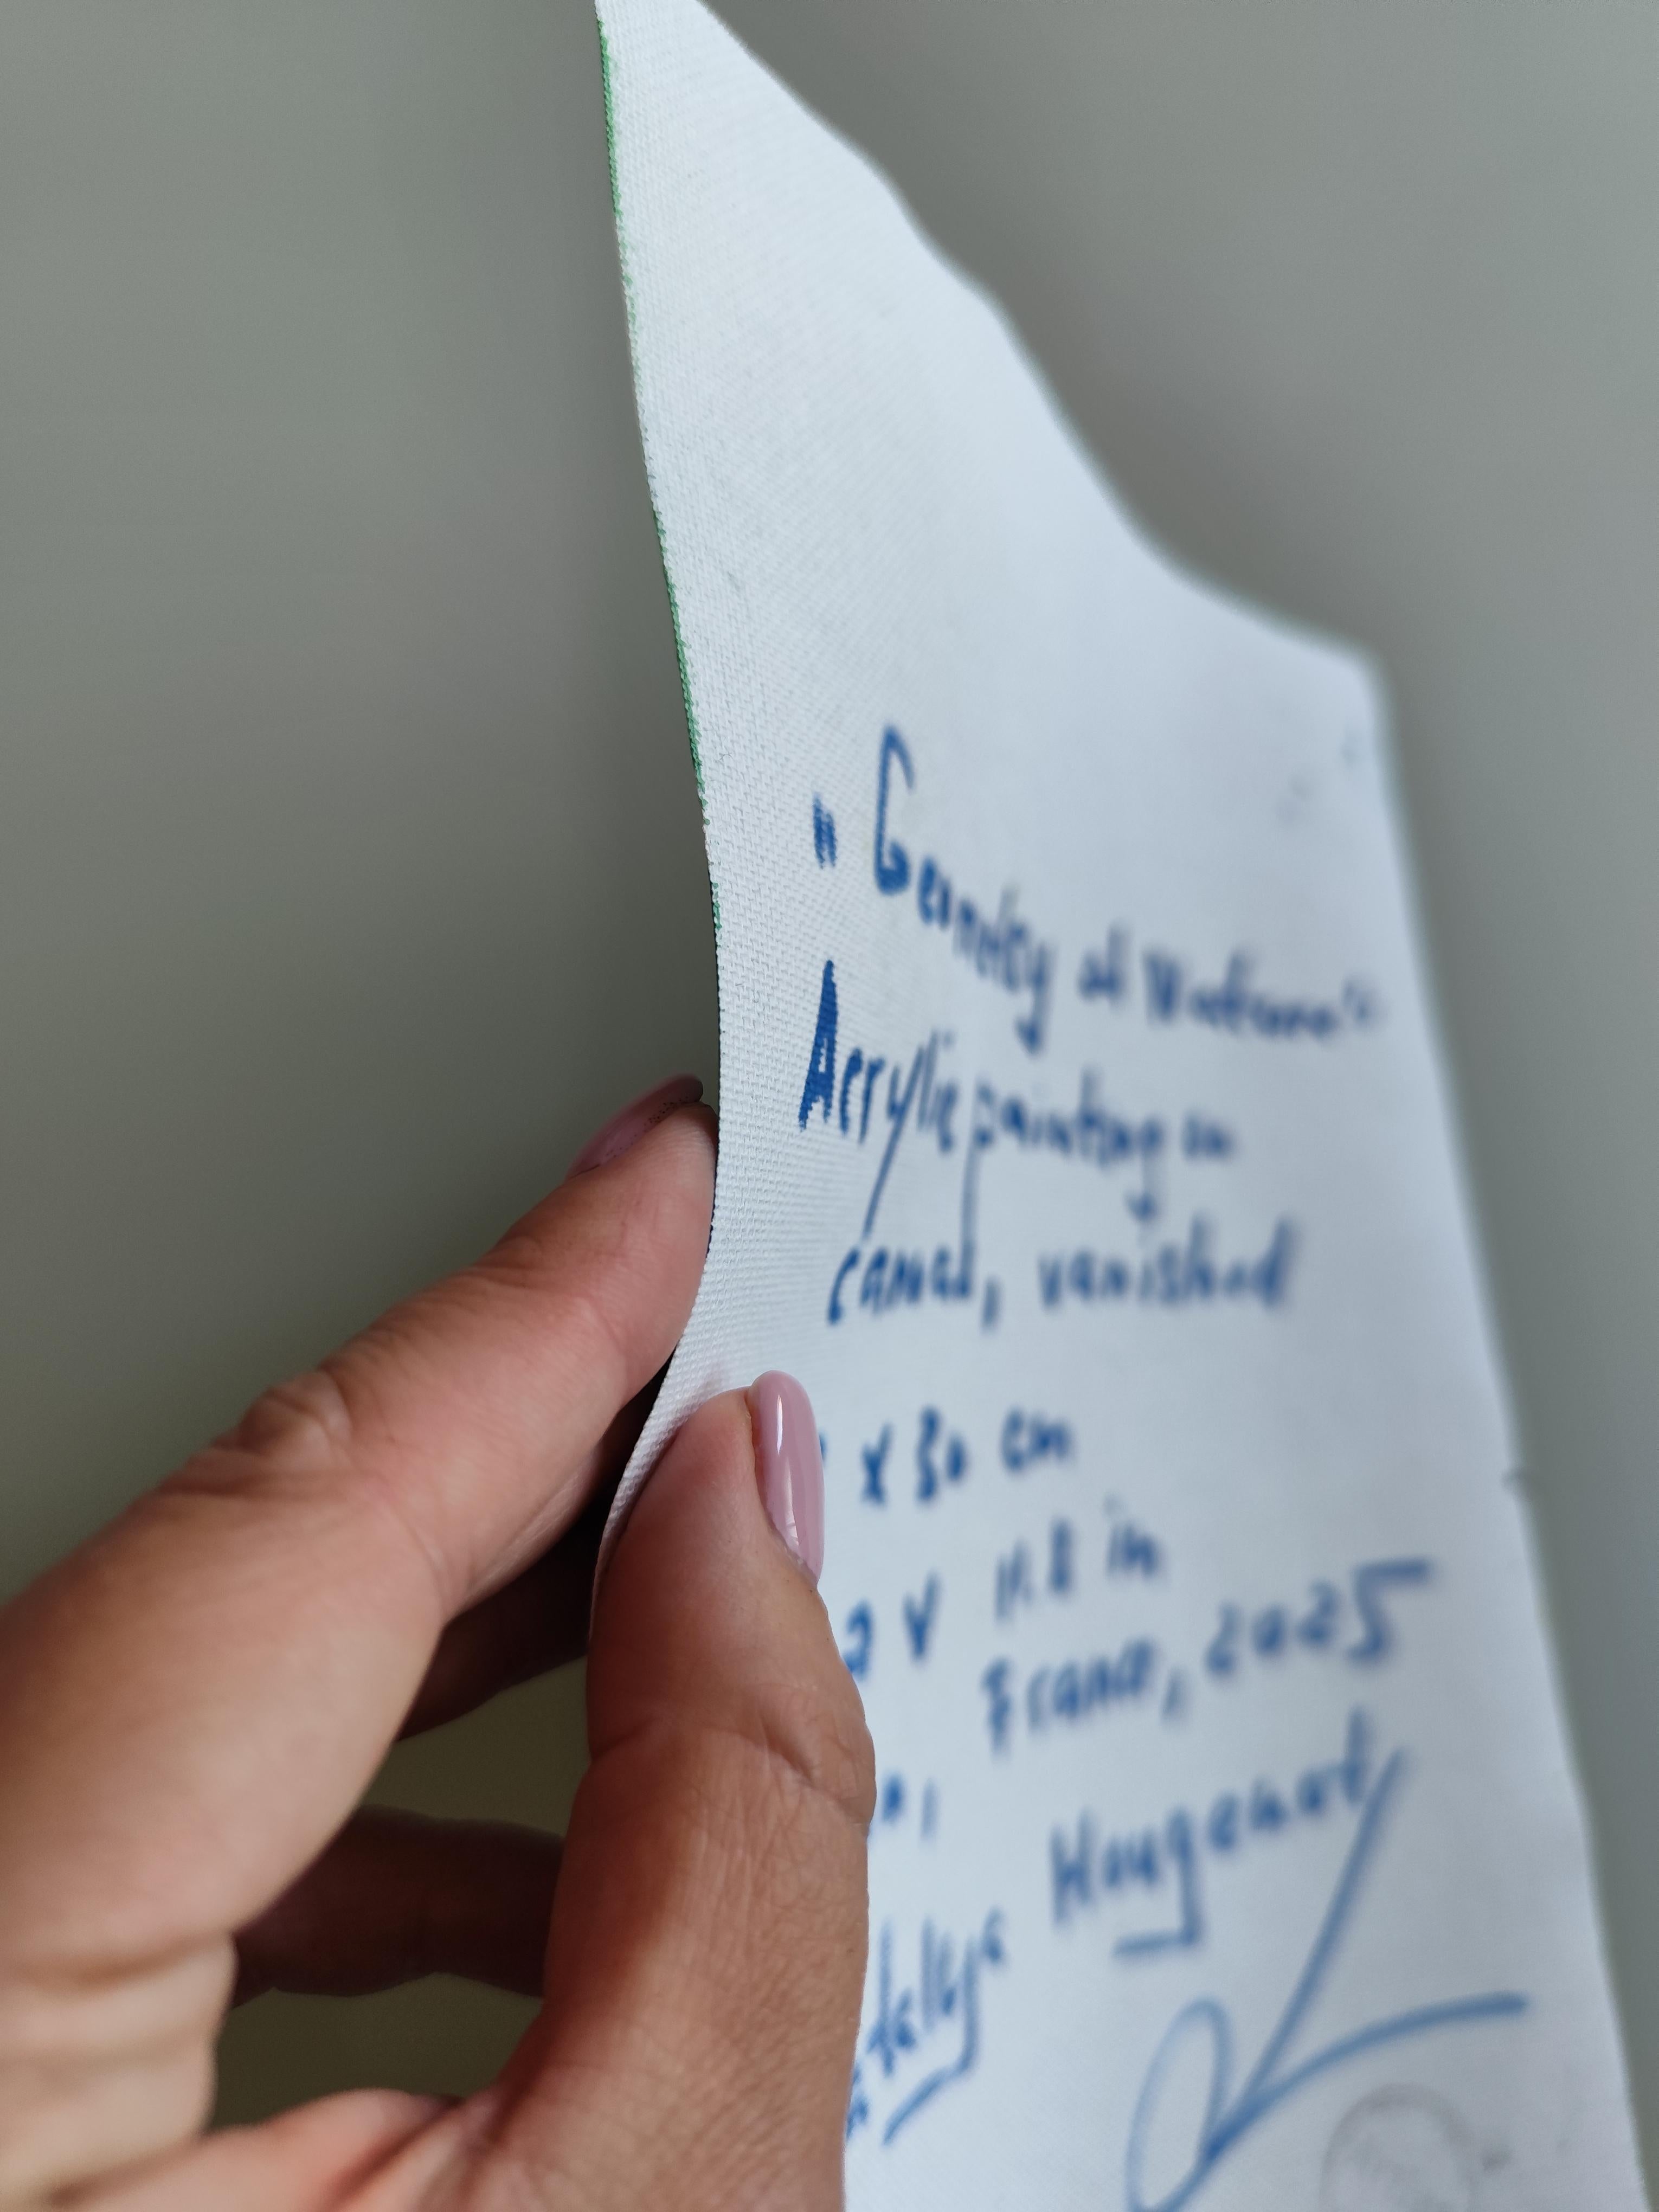 "Geometry of Nature"
Acrylic painting on
canvas, vanished
x 30 cm
11.8 in
France, 2025
Hougenot